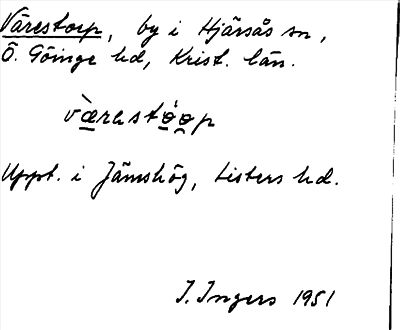 Vårestorp, by i Hjärsås sn,
Ö. Göinge hd, Krist. län.
væ̀rastǿøp
Uppt. i Jämshög, Listers hd.
I. Ingers 1951